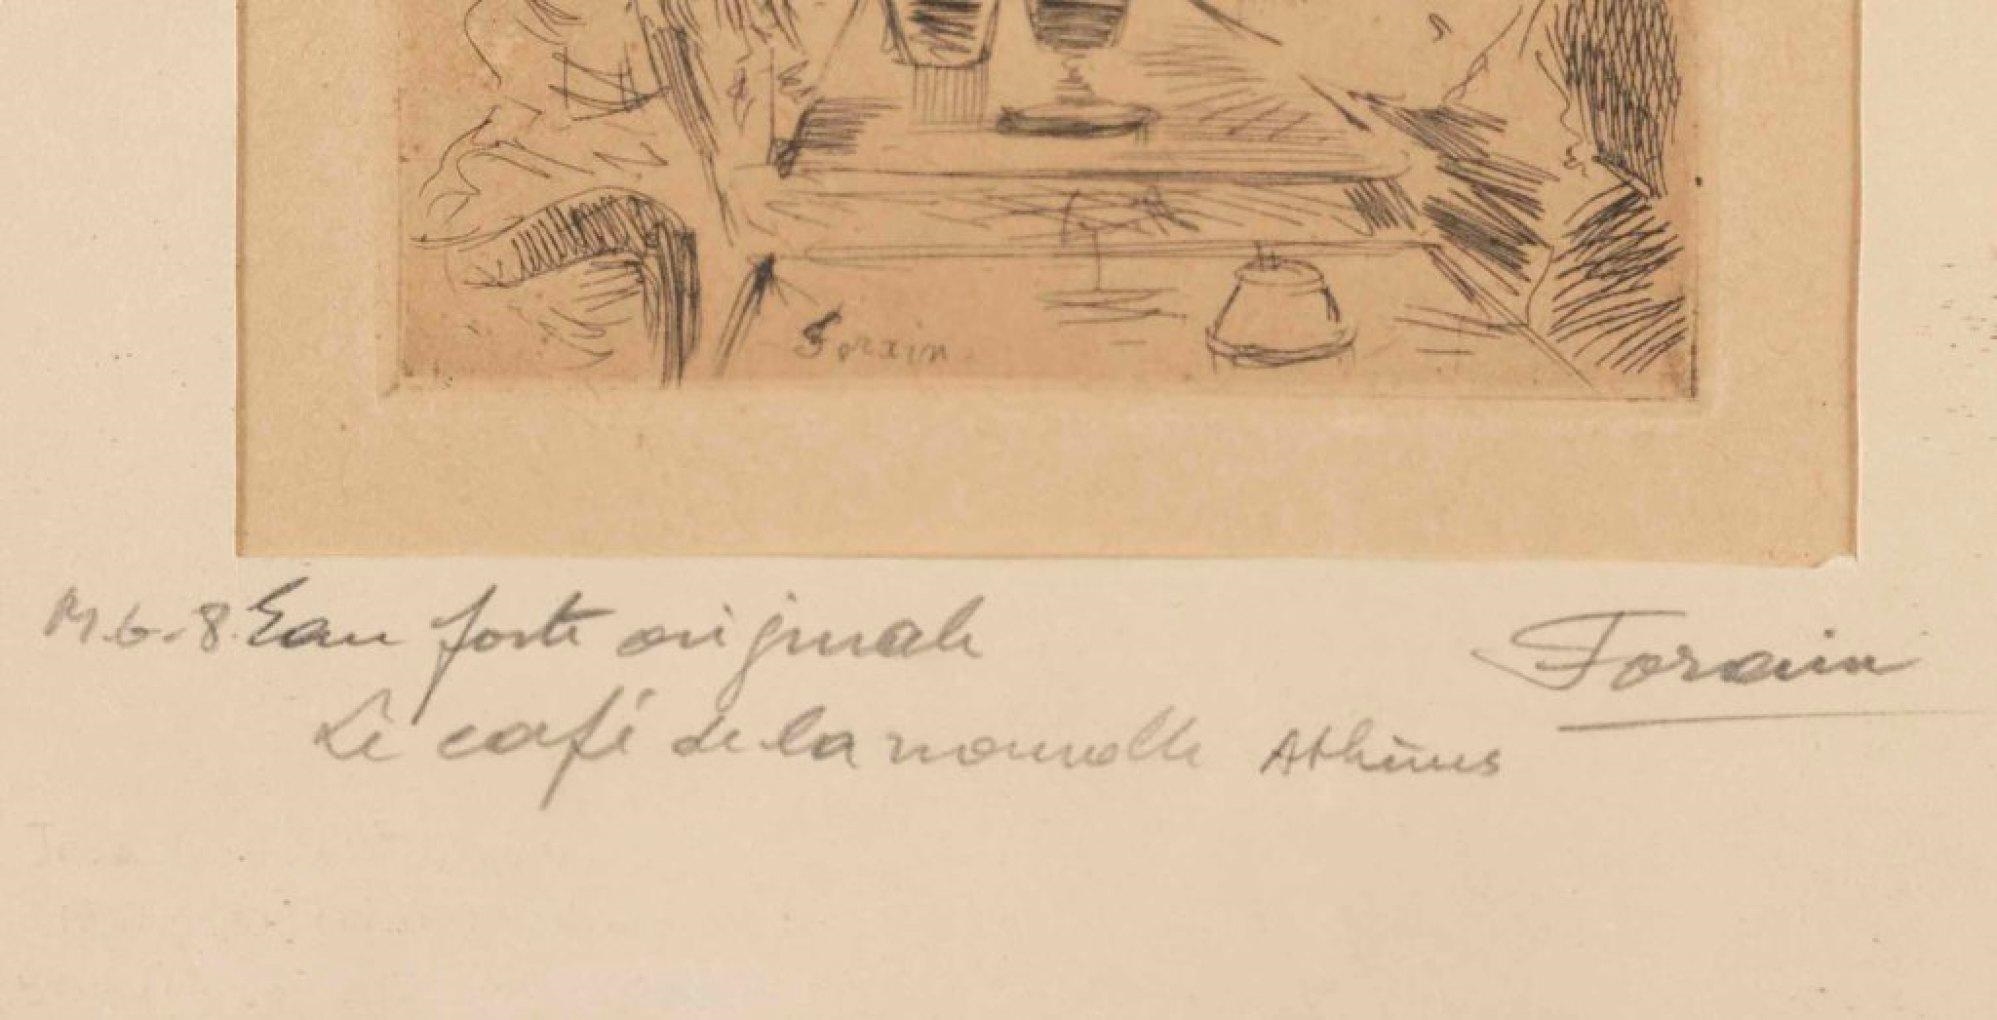 Forain
M.G.8. Eau forte originale
Forain
Le café de la nouvelle Athènes